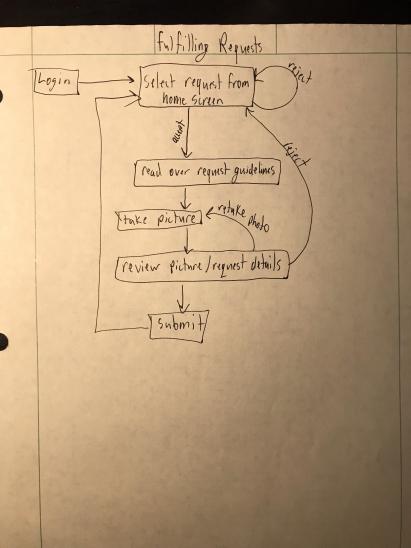 Fulfilling Requests
Login
Select request from
home screen
reject
accept
reject
read over request guidelines
take picture
retake
photo
review picture/request details
submit